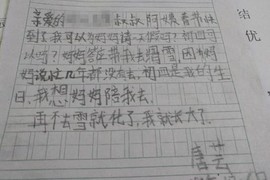 亲爱的 叔叔阿姨春节快
到了我可以 妈妈请 假吗?初四可
以吗?妈妈答应带我去滑雪,因为妈
妈说忙几年都没有去,初四是我的生
日,我想妈妈陪我去,
再不去雪就化了,我就长大了。
唐芸
结
优